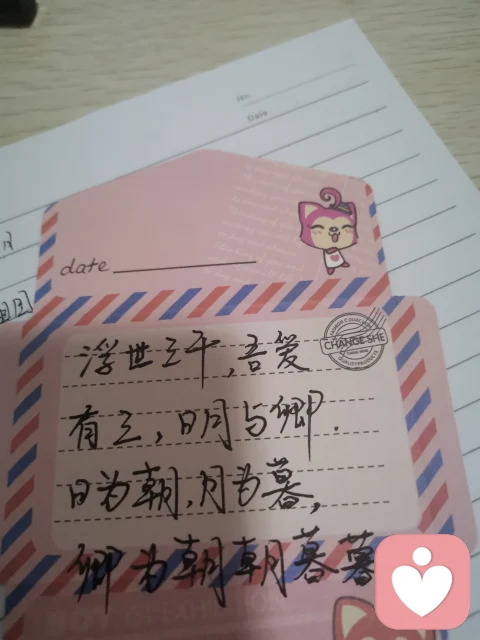 No.
Date
date
CHANGE SHE
浮世三千,吾爱
有三,日月与卿.
日为朝,月为暮,
卿为朝朝暮暮